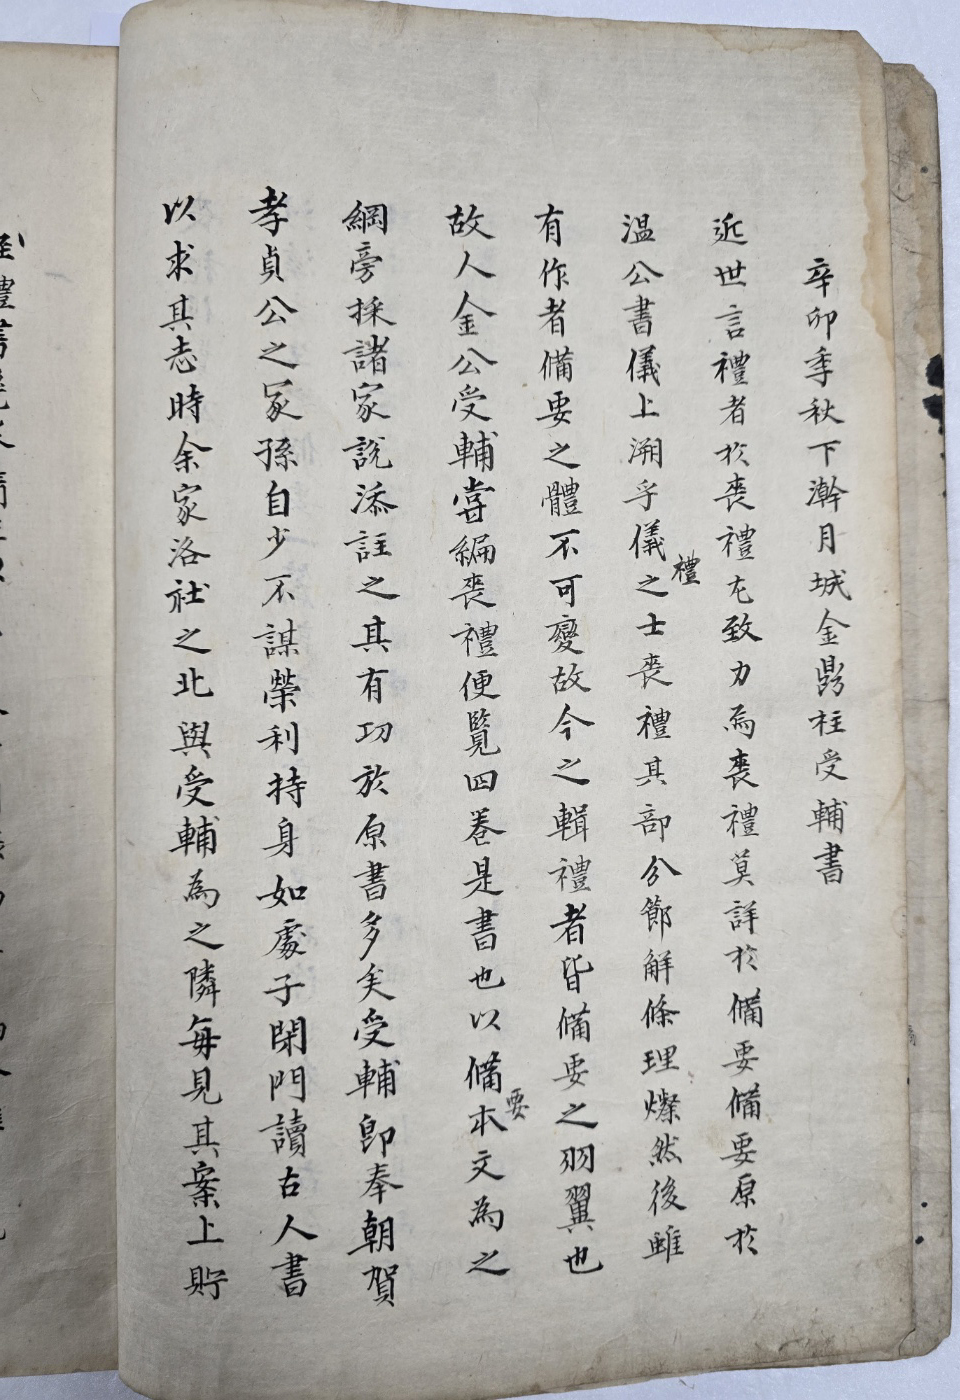 辛卯季秋下澣月城金鼎柱受輔書
近世言禮者於喪禮尤致力焉喪禮莫詳於備要備要原於
温公書儀上溯乎儀禮之士喪禮其部分節解條理燦然後雖
有作者備要之體不可變故今之輯禮者皆備要之羽翼也
故人金公受輔嘗編喪禮便覧四卷是書也以備要本文為之
綱旁採諸家說添註之其有功於原書多矣受輔卽奉朝賀
孝貞公之冢孫自少不謀榮利持身如處子閉門讀古人書
以求其志時余家洛社之北與受輔為之隣每見其案上貯